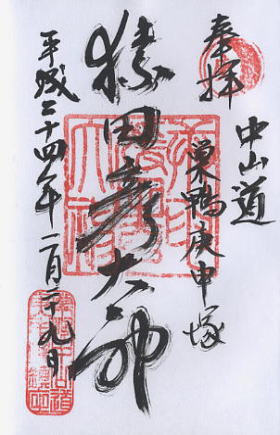 奉拝
中山道
巣鴨庚申塚
猿田彦大神
平成二十四年二月二十九日